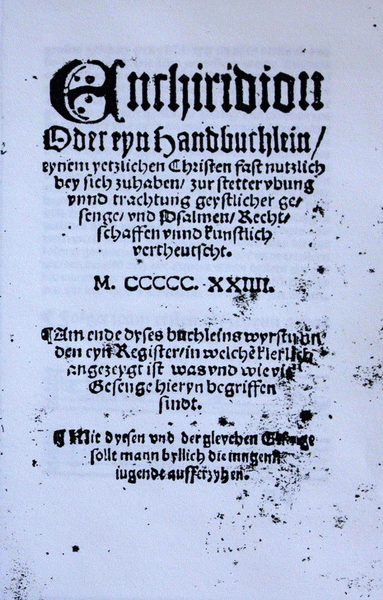 Enchiridion
Oder eyn Handbuchlein/
eynem yetzlichen Christen fast nutzlich
bey sich zuhaben/ zur stetter vbung
vnnd trachtung geystlicher ge-
senge/ vnd Psalmen/ Recht-
schaffen vnnd kunstlich
vertheutscht.
M. CCCCC. XXIIII.
¶ Am ende dyses buchleins wyrstu fin
den eyn Register/ in welchē klerlich
angezeygt ist was vnd wie viel
Gesenge hieryn begriffen
sindt.
¶ Mit dysen vnd der gleychen Gesenge
solle mann byllich die iungenn
iugendt aufferzyhen.